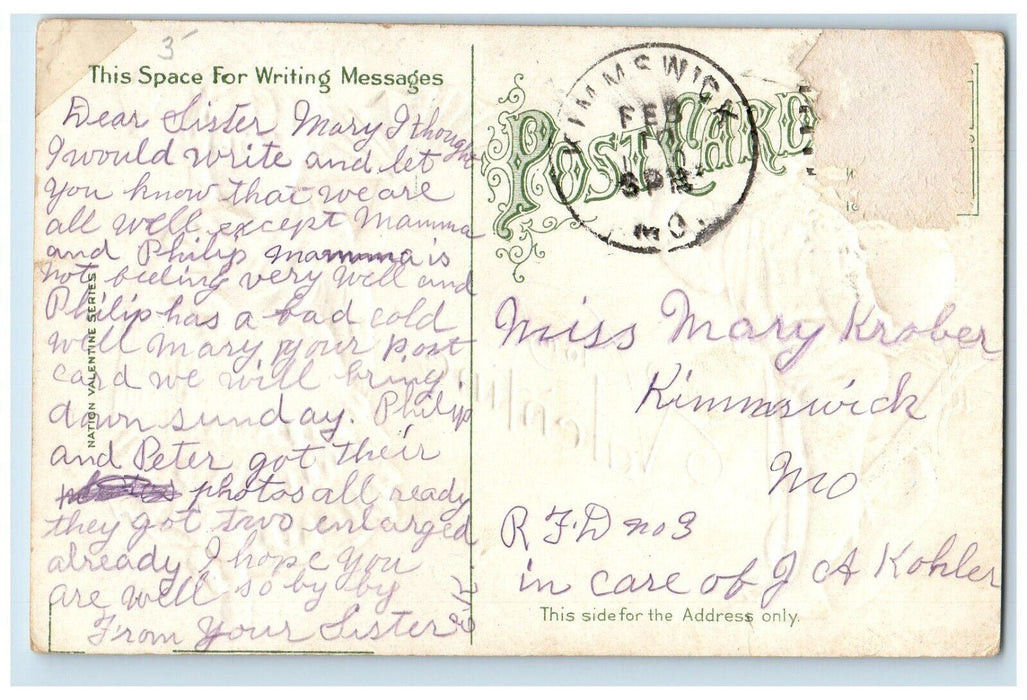 3
This Space For Writing Messages
Dear Sister Mary I thought
I would write and let
you know that we are
all well except Mamma
and Philip mamma is
not feeling very well and
Philip has a bad cold
well Mary your post
card we will bring
down sunday. Philip
and Peter got their
photos all ready
they got two enlarged
already I hope you
are well so by by
From Your Sister
E.K.
NATION VALENTINE SERIES
POST CARD
KIMMSWICK
FEB
MO.
Miss Mary Krober
Kimmswick
Mo
R F.D no 3
in care of J A Kohler
This side for the Address only.